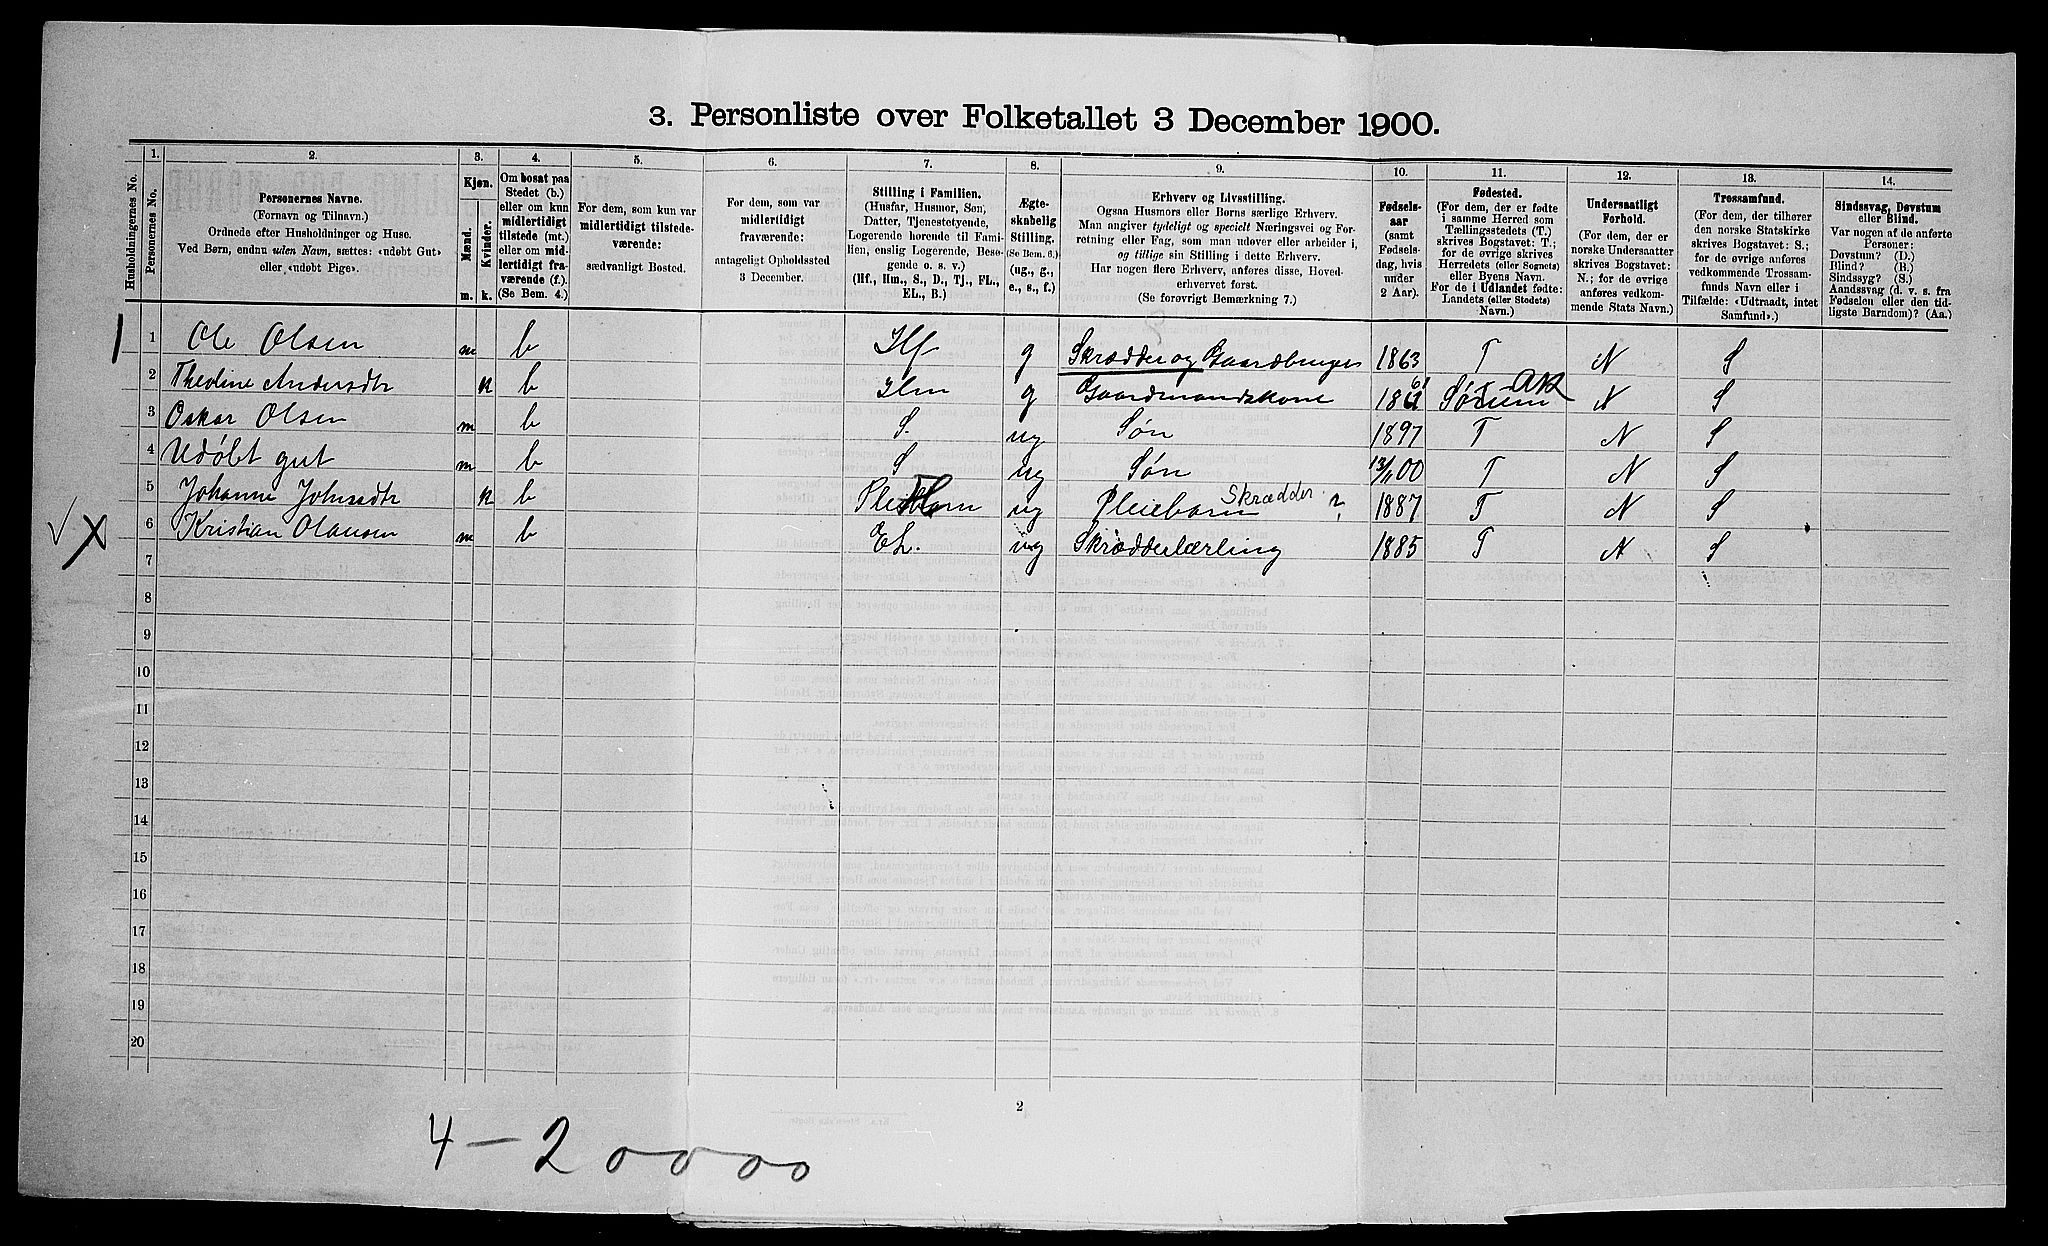 3. Personliste over Folketallet 3 December 1900.
Husholdningernes No.
1.
Personernes No.
2.
Personernes Navne.
(Fornavn og Tilnavn.)
Ordnede efter Husholdninger og Huse.
Ved Børn, endnu uden Navn, sættes: «udøbt Gut»
eller «udøbt Pige».
3.
Kjøn.
Mænd.
Kvinder.
m.
k.
4.
Om bosat paa
Stedet (b.)
eller om kun
midlertidigt
tilstede (mt.)
eller om mid-
lertidigt fra-
værende (f.).
(Se Bem. 4.)
5.
For dem, som kun var
midlertidigt tilstede-
værende:
sædvanligt Bosted.
6.
For dem, som var
midlertidigt
fraværende:
antageligt Opholdssted
3 December.
7.
Stilling i Familien.
(Husfar, Husmor, Søn,
Datter, Tjenestetyende,
Logerende hørende til Fami-
lien, enslig Logerende, Besø-
gende o. s. v.)
(Hf., Hm., S., D., Tj., FL.,
EL., B.)
8.
Ægte-
skabelig
Stilling.
(Se Bem. 6.)
(ug., g.,
e., s., f.)
9.
Erhverv og Livsstilling.
Ogsaa Husmors eller Børns særlige Erhverv.
Man angiver tydeligt og specielt Næringsvei og For-
retning eller Fag, som man udover eller arbeider i,
og tillige sin Stilling i dette Erhverv.
Har nogen flere Erhverv, anføres disse, Hoved-
erhvervet først.
(Se forøvrigt Bemærkning 7.)
10.
Fødsels-
aar
(samt
Fødsels-
dag, hvis
under
2 Aar).
11.
Fødested.
(For dem, der er fødte
i samme Herred som
Tællingsstedets (T.)
skrives Bogstavet: T.;
for de øvrige skrives
Herredets (eller Sognets)
eller Byens Navn.
For de i Udlandet fødte:
Landets (eller Stedets)
Navn.)
12.
Undersaatligt
Forhold.
(For dem, der er
norske Undersaatter
skrives Bogstavet:
N.; for de øvrige
anføres vedkom-
mende Stats Navn.)
13.
Trossamfund.
(For dem, der tilhører
den norske Statskirke
skrives Bogstavet: S.;
for de øvrige anføres
vedkommende Trossam-
funds Navn eller i
Tilfælde: «Udtraadt, intet
Samfund».)
14.
Sindssvag, Døvstum
eller Blind.
Var nogen af de anførte
Personer:
Døvstum? (D.)
Blind? (B.)
Sindssyg? (S.)
Aandssvag (d. v. s. fra
Fødselen eller den tid-
ligste Barndom)? (Aa.)
1 Ole Olsen m b Hf g Skrædder og Gaardbruger 1863 T N S
2 Theoline Andersdtr k b Hm g Gaardmandskone 1861 Sørum AK N S
3 Oskar Olsen m b S. ug Søn 1897 T N S
4 Udøbt gut m b S ug Søn 13/11 00 T N S
5 Johanne Johnsdtr k b Pleiebarn ug Pleiebarn Skrædder ? 1887 T N S
6 Kristian Olausen m b EL. ug Skrædderlærling 1885 T N S
7
8
9
10
11
12
13
14
15
16
17
18
19
20
2
4 - 20000